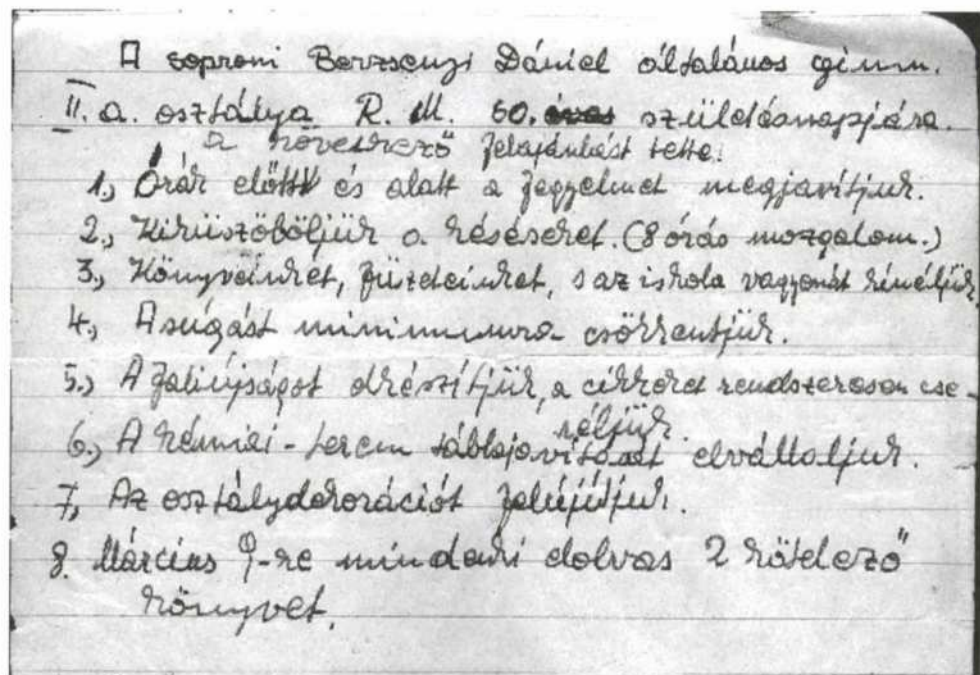 A soproni Berzsenyi Dániel általános gimn.
II. a. osztálya R. M. 60. éves születésnapjára.
a következő felajánlást tette:
1., Órák előtt és alatt a fegyelmet megjavítjuk.
2., Kiküszöböljük a késéseket. (8 órás mozgalom.)
3., Könyveinket, füzeteinket, s az iskola vagyonát kíméljük
4., A súgást minimumra csökkentjük.
5.) A faliújságot elkészítjük, a cikkeket rendszeresen cse-
réljük.
6.) A kémiai-terem táblajavítását elvállaljuk.
7, Az osztálydekorációt felújítjuk.
8. Március 9-re mindenki elolvas 2 kötelező
könyvet.